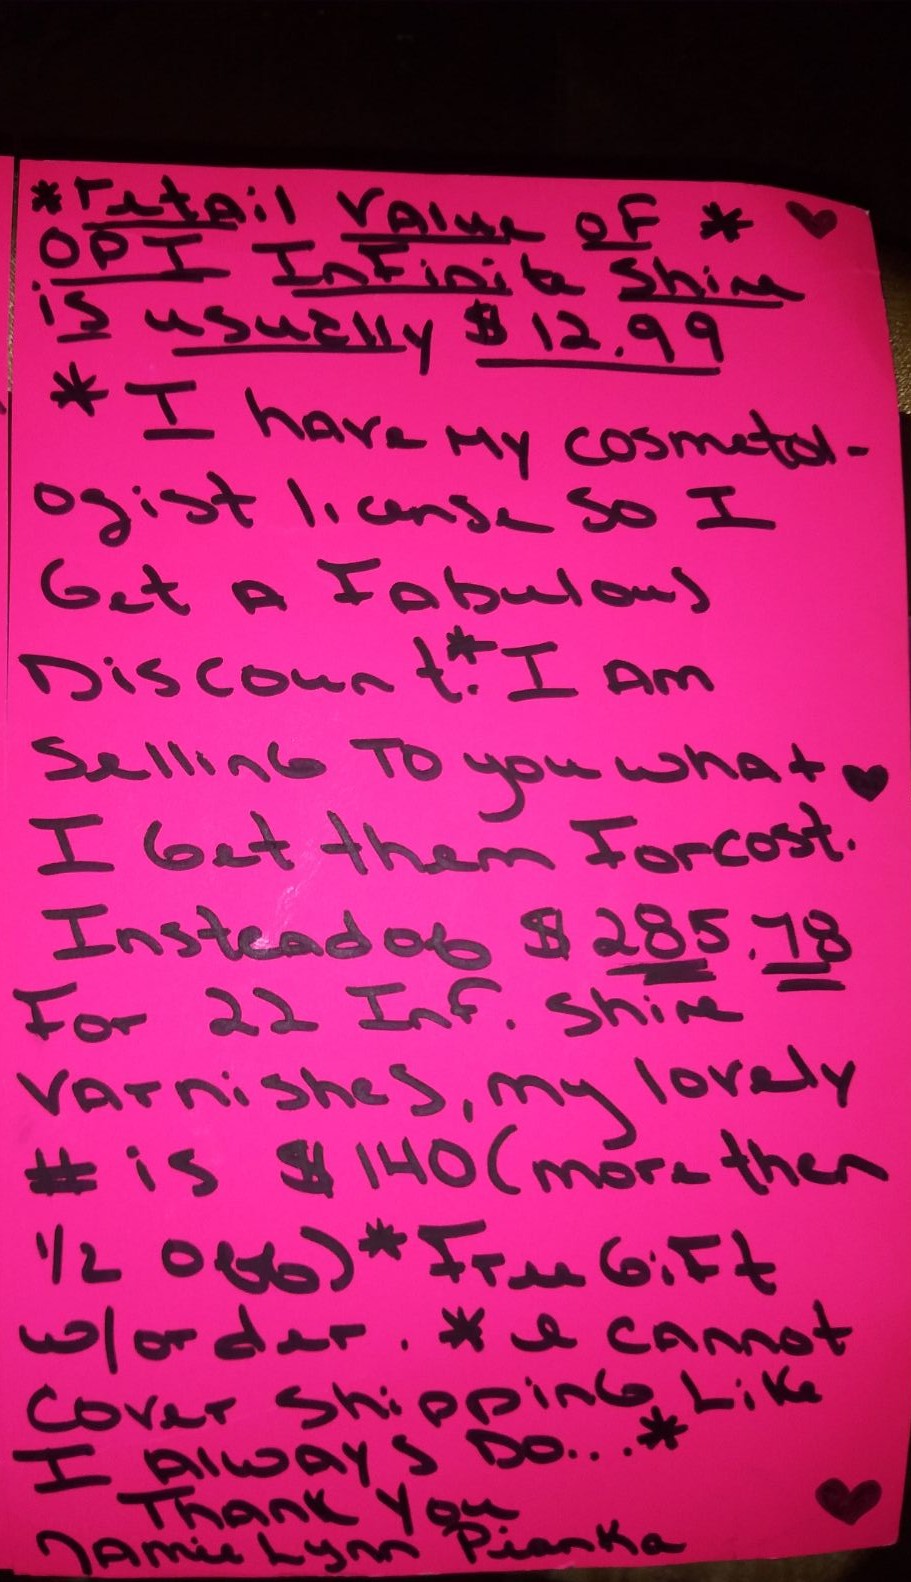 *retail Value of *
OPI Infinite Shine
is usually $12.99
* I have my cosmetol-
ogist license so I
Get a Fabulous
Discount.* I Am
Selling To you what
I Get them For cost.
Instead of $285.78
For 22 Inf. Shine
varnishes, my lovely
# is $140 (more then
1/2 off) * Free Gift
w/order. * I cannot
cover shipping Like
I Always Do...*
Thank you
Jamie Lynn Pianka